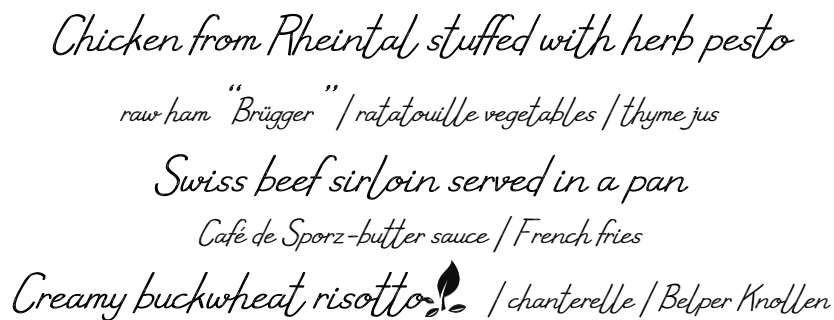 Chicken from Rheintal stuffed with herb pesto
raw ham “Brügger ” / ratatouille vegetables / thyme jus
Swiss beef sirloin served in a pan
Café de Sporz-butter sauce / French fries
Creamy buckwheat risotto / chanterelle / Belper Knollen